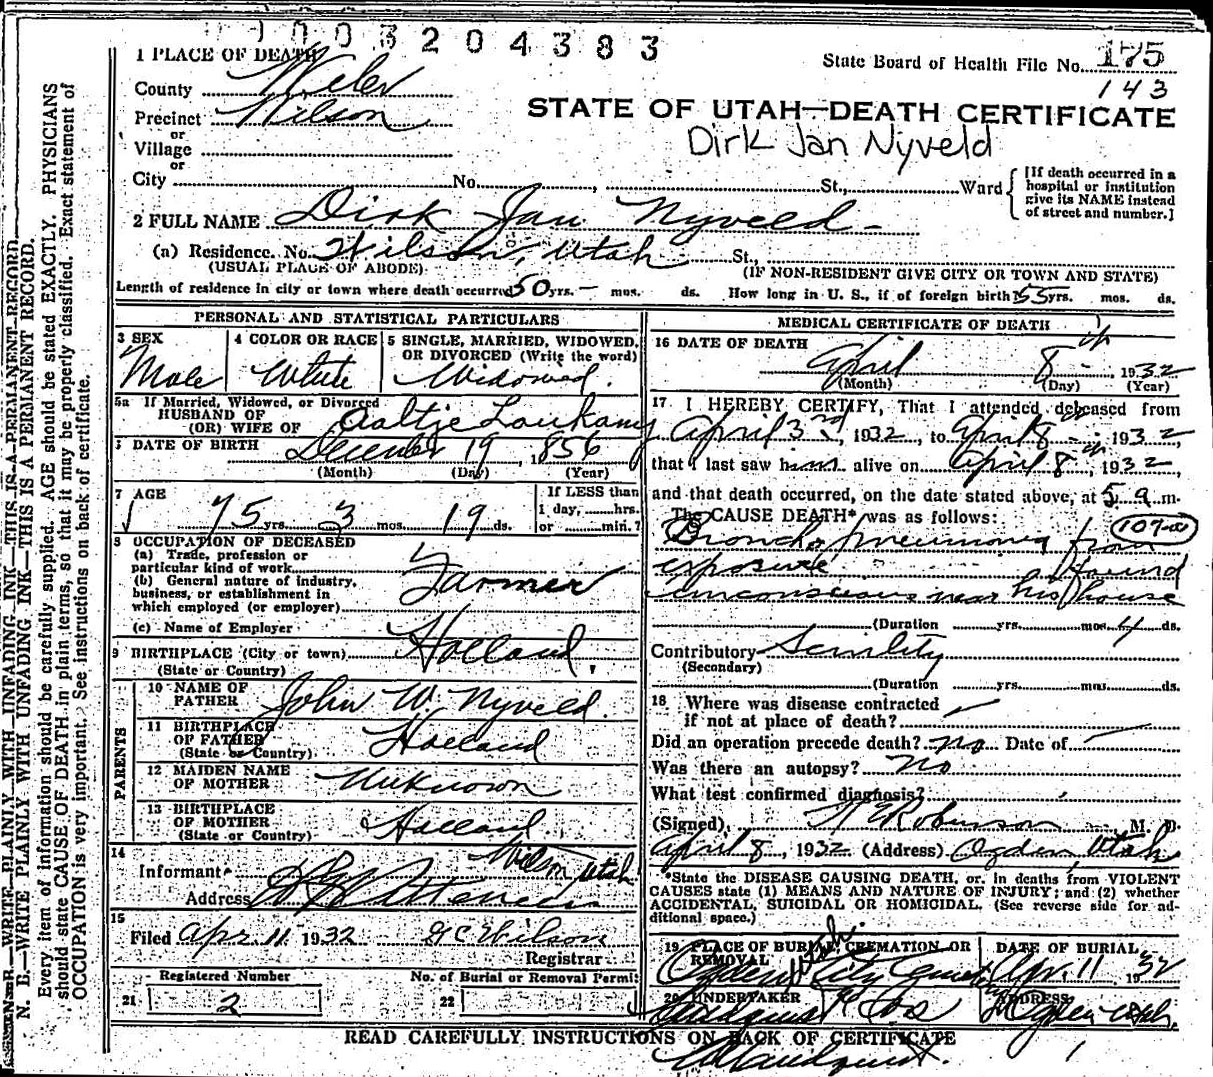 1003204383
1 PLACE OF DEATH
State Board of Health File No. 175
143
County Weber
STATE OF UTAH—DEATH CERTIFICATE
Precinct Wilson
Dirk Jan Nyveld
or
Village
or
City No. , St., Ward
[If death occurred in a hospital or institution give its NAME instead of street and number.]
2 FULL NAME Dirk Jan Nyveld
(a) Residence. No. Wilson, Utah St.,
(USUAL PLACE OF ABODE) (IF NON-RESIDENT GIVE CITY OR TOWN AND STATE)
Length of residence in city or town where death occurred 50 yrs. – mos. ds. How long in U. S., if of foreign birth 55 yrs. mos. ds.
PERSONAL AND STATISTICAL PARTICULARS
3 SEX
Male
4 COLOR OR RACE
White
5 SINGLE, MARRIED, WIDOWED, OR DIVORCED (Write the word)
Widowed.
5a If Married, Widowed, or Divorced
HUSBAND OF
(OR) WIFE OF Aaltje
DATE OF BIRTH December 19, 1856
(Month) (Day) (Year)
7 AGE
75 yrs. 3 mos. 19 ds.
If LESS than
1 day, hrs.
or min.?
8 OCCUPATION OF DECEASED
(a) Trade, profession or
particular kind of work
Farmer
(b) General nature of industry,
business, or establishment in
which employed (or employer)
(c) Name of Employer
9 BIRTHPLACE (City or town) Holland
(State or Country)
PARENTS
10 NAME OF
FATHER John W. Nyveld.
11 BIRTHPLACE
OF FATHER Holland
(State or Country)
12 MAIDEN NAME
OF MOTHER Unknown
13 BIRTHPLACE
OF MOTHER Holland
(State or Country)
14
Wilson Utah
Informant
Address
15
Filed Apr 11 1932 G C Wilson
Registrar
Registered Number No. of Burial or Removal Permit
21 2 22
MEDICAL CERTIFICATE OF DEATH
16 DATE OF DEATH
April 8th, 1932
(Month) (Day) (Year)
17 I HEREBY CERTIFY, That I attended deceased from
April 3rd, 1932, to April 8 th 1932,
that I last saw him alive on April 8th, 1932,
and that death occurred, on the date stated above, at 5 a m.
The CAUSE DEATH* was as follows:
107-a
Broncho pneumonia from
exposure found
unconscious near his house
(Duration yrs. mos. 4 ds.
Contributory Senility
(Secondary)
(Duration yrs. mos. ds.
18 Where was disease contracted
if not at place of death?
Did an operation precede death? No Date of
Was there an autopsy? No
What test confirmed diagnosis?
(Signed) Robinson M. D.
April 8, 1932 (Address) Ogden Utah
*State the DISEASE CAUSING DEATH, or, in deaths from VIOLENT
CAUSES state (1) MEANS AND NATURE OF INJURY; and (2) whether
ACCIDENTAL, SUICIDAL OR HOMICIDAL. (See reverse side for additional space.)
19 PLACE OF BURIAL, CREMATION, OR REMOVAL
Ogden City Cemetery Utah
DATE OF BURIAL
Apr. 11 1932
20 UNDERTAKER
Lindquist & Sons
ADDRESS
Ogden Utah.
READ CAREFULLY INSTRUCTIONS ON BACK OF CERTIFICATE
Lindquist.
N. B.—WRITE PLAINLY WITH UNFADING INK—THIS IS A PERMANENT RECORD.
Every item of information should be carefully supplied. AGE should be stated EXACTLY. PHYSICIANS
should state CAUSE OF DEATH in plain terms, so that it may be properly classified. Exact statement of
OCCUPATION is very important. See instructions on back of certificate.